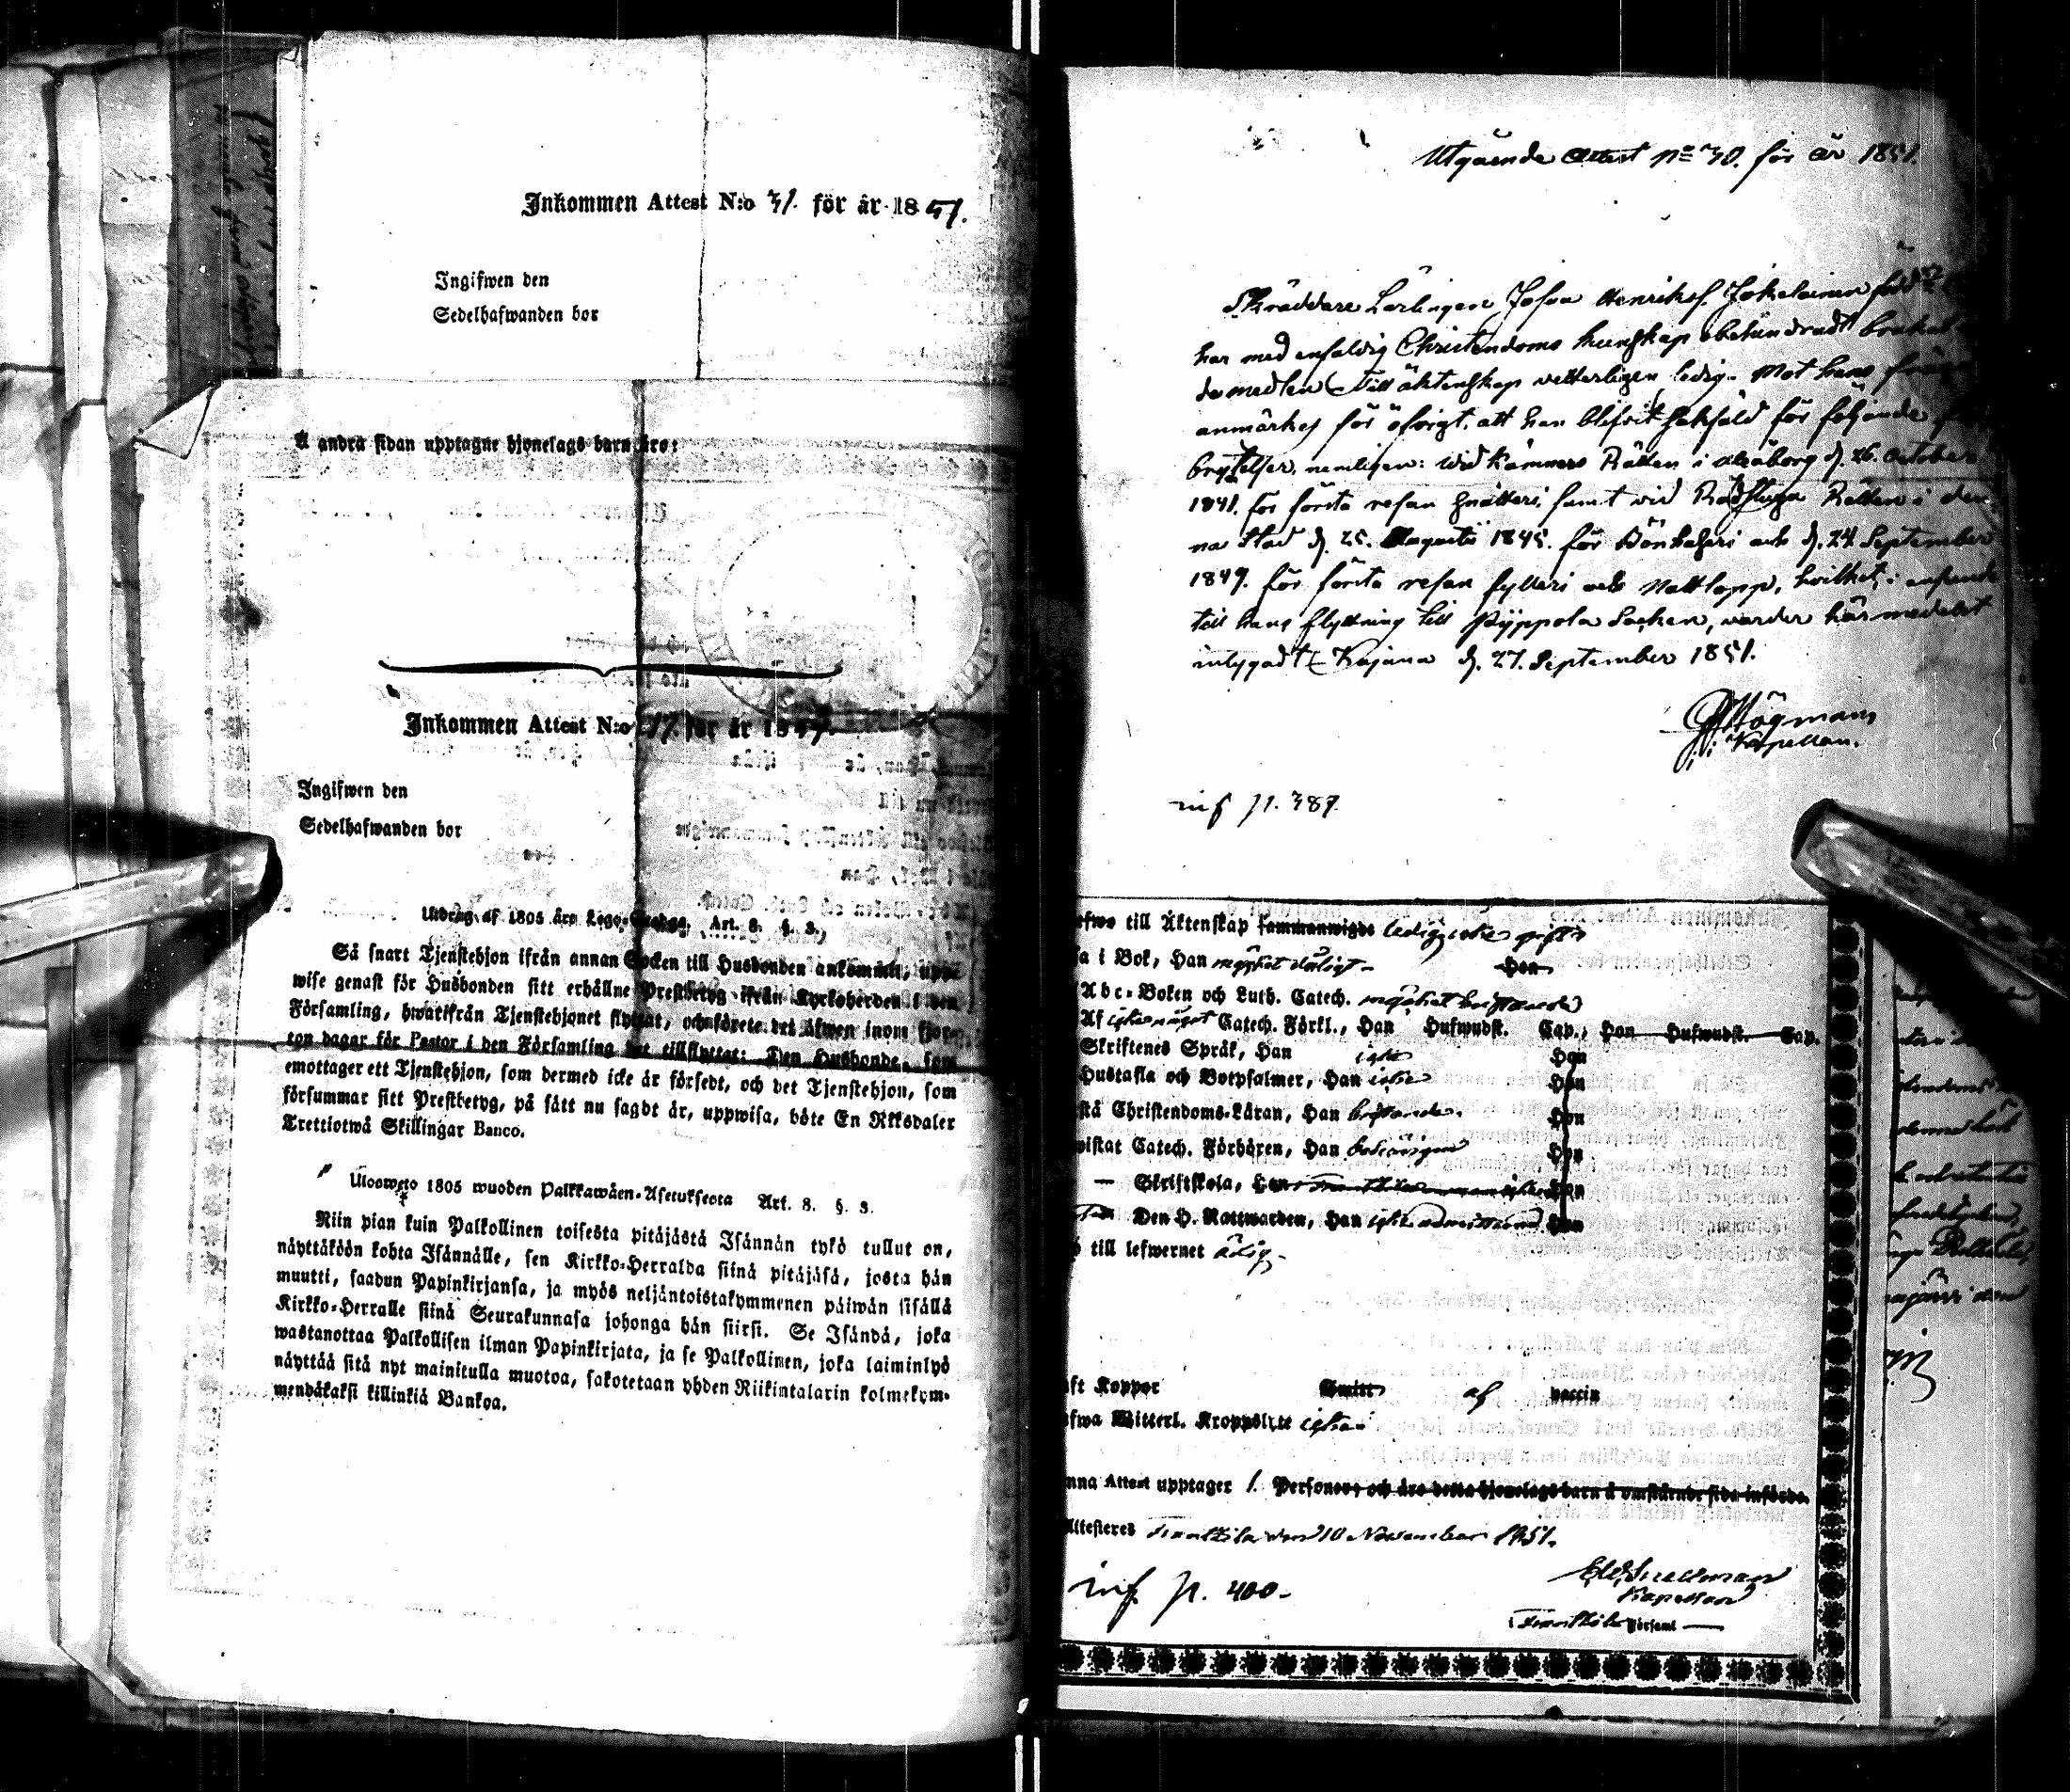 Inkommen Attest N:o 31. för år 1851.
Ingifwen den
Sedelhafwanden bor
Å andra sidan upptagne hjonelags barn äro:
Inkommen Attest N:o 17. för år 1847.
Ingifwen den
Sedelhafwanden bor
Utdrag af 1805 års Lego-Stadga, Art. 8. §. 3.
Så snart Tjenstehjon ifrån annan Socken till Husbonden ankommit, upp-
wise genast för Husbonden sitt erhållne Prestbetyg ifrån Kyrkoherden i den
Församling, hwarifrån Tjenstehjonet flyttat, och förete det äfwen inom fjor-
ton dagar för Pastor i den Församling det tillflyttat: Den Husbonde, som
emottager ett Tjenstehjon, som dermed icke är försedt, och det Tjenstehjon, som
försummar sitt Prestbetyg, på sätt nu sagdt är, uppwisa, böte En Riksdaler
Trettiotwå Skillingar Banco.
Ulosweto 1805 wuoden Palkkawäen-Asetuksesta Art. 8. §. 3.
Niin pian kuin Palkollinen toisesta pitäjästä Isännän tykö tullut on,
näyttäköön kohta Isännälle, sen Kirkko-Herralda siinä pitäjäsä, josta hän
muutti, saadun Papinkirjansa, ja myös neljäntoistakymmenen päiwän sisällä
Kirkko-Herralle siinä Seurakunnasa johonga hän siirsi. Se Isändä, joka
wastanottaa Palkollisen ilman Papinkirjata, ja se Palkollinen, joka laiminlyö
näyttää sitä nyt mainitulla muotoa, sakotetaan yhden Riikintalarin kolmekym-
mendäkaksi killinkiä Bankoa.
Utgående Attest No 30. för år 1851.
Skräddare Lärlingen Josva Henrikss. Jokelainen född
har med enfaldig Christendoms kunskap obehindradt brukat
de medlen Till äktenskap vetterligen ledig. Mot hans
anmärkes för öfrigt, att han blifvit sakfäld för följande
brytelser, nemligen: Wid Kämners Rätten i Uleåborg d. 26. October
1841. för första resan snatteri, samt vid Rådstugu Rätten i den
na Stad d. 25. Augusti 1845. för Bönhaseri och d. 24 September
1849. för första resan fylleri och Nattlopp, hvilket, i anseende
till hans flyttning till Pyhppola Socken, varder härmedelst
intygadt Kajana d. 27. September 1851.
Högman
Kapellan.
inf p. 387.
efwe till Äktenskap sammanwigde ledig, icke gift
sa i Bok, Han mycket dåligt Hon
Abc-Boken och Luth. Catech. mycket bristande
Af icke något Catech. Förkl., Han Hufwudst. Cap., Hon Hufwudst. Cap.
Skriftenes Språk, Han icke Hon
Hustafla och Botpsalmer, Han icke Hon
stå Christendoms-Läran, Han bristande. Hon
wistat Catech. Förhören, Han Hon
— Skriftskola, Han Hon
Den H. Nattwarden, Han icke admitterad Hon
till lefwernet ärlig
aft Koppor Smitt af vaccin
efwa Witterl. Kroppslyte icke
nna Attest upptager 1. Personer, och äro detta hjonelags barn å omstående sida införde.
Attesteres Frantsila den 10 November 1851.
inf. p. 400
Snellman
Kapellan
Frantsila Församl